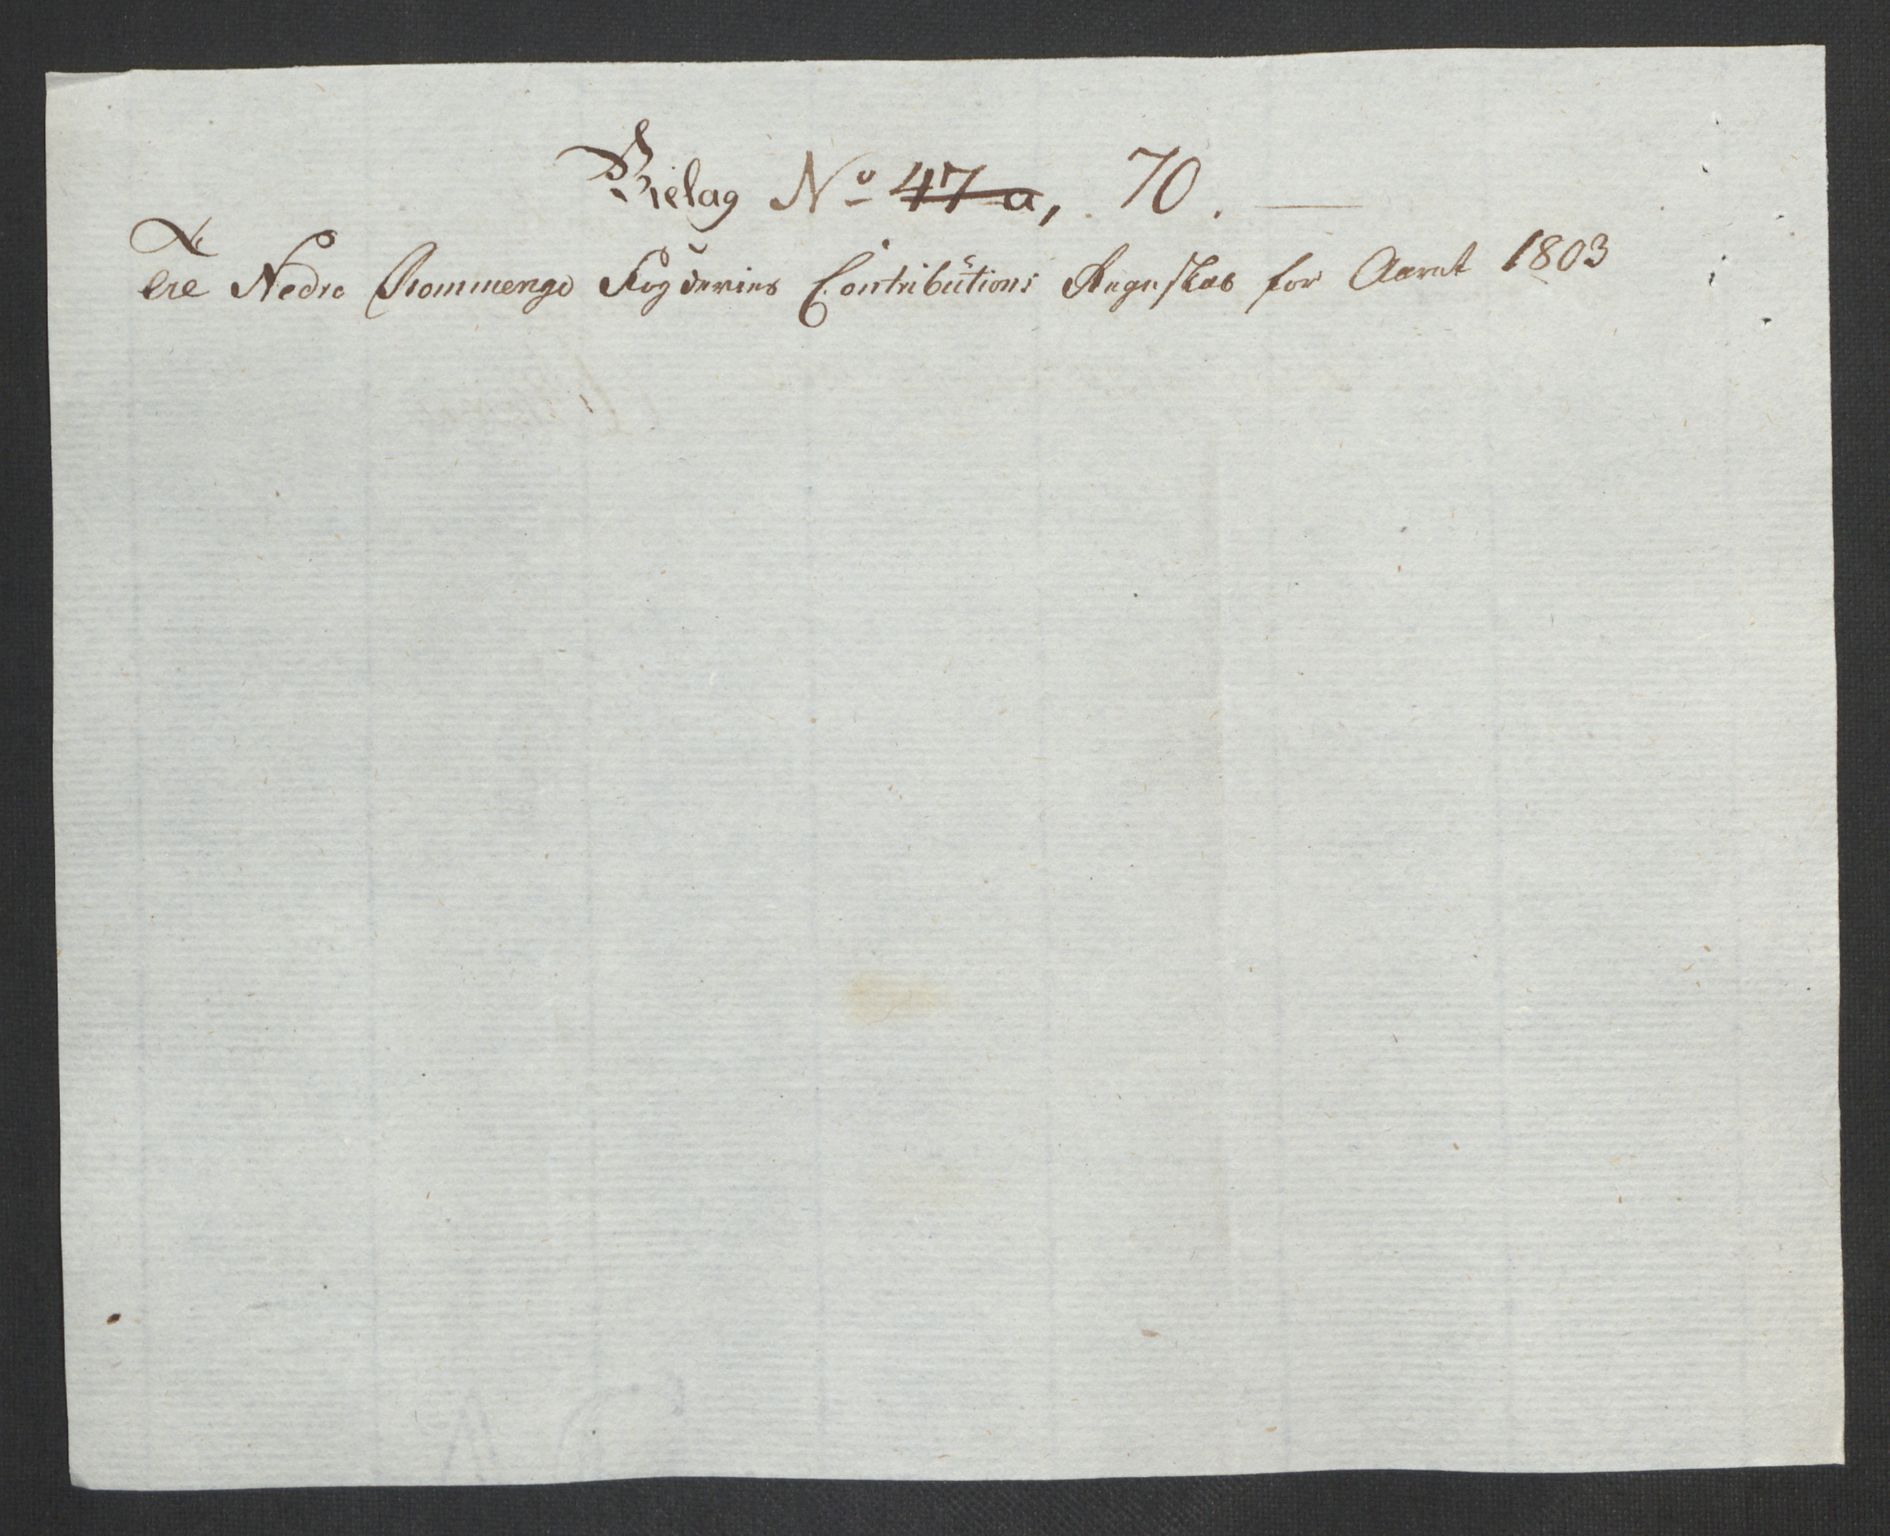 Bielag No 47 a, 70.
Til
ere Nedre Rommerige Fogderies Contributions Regnskab for Aaret 1803